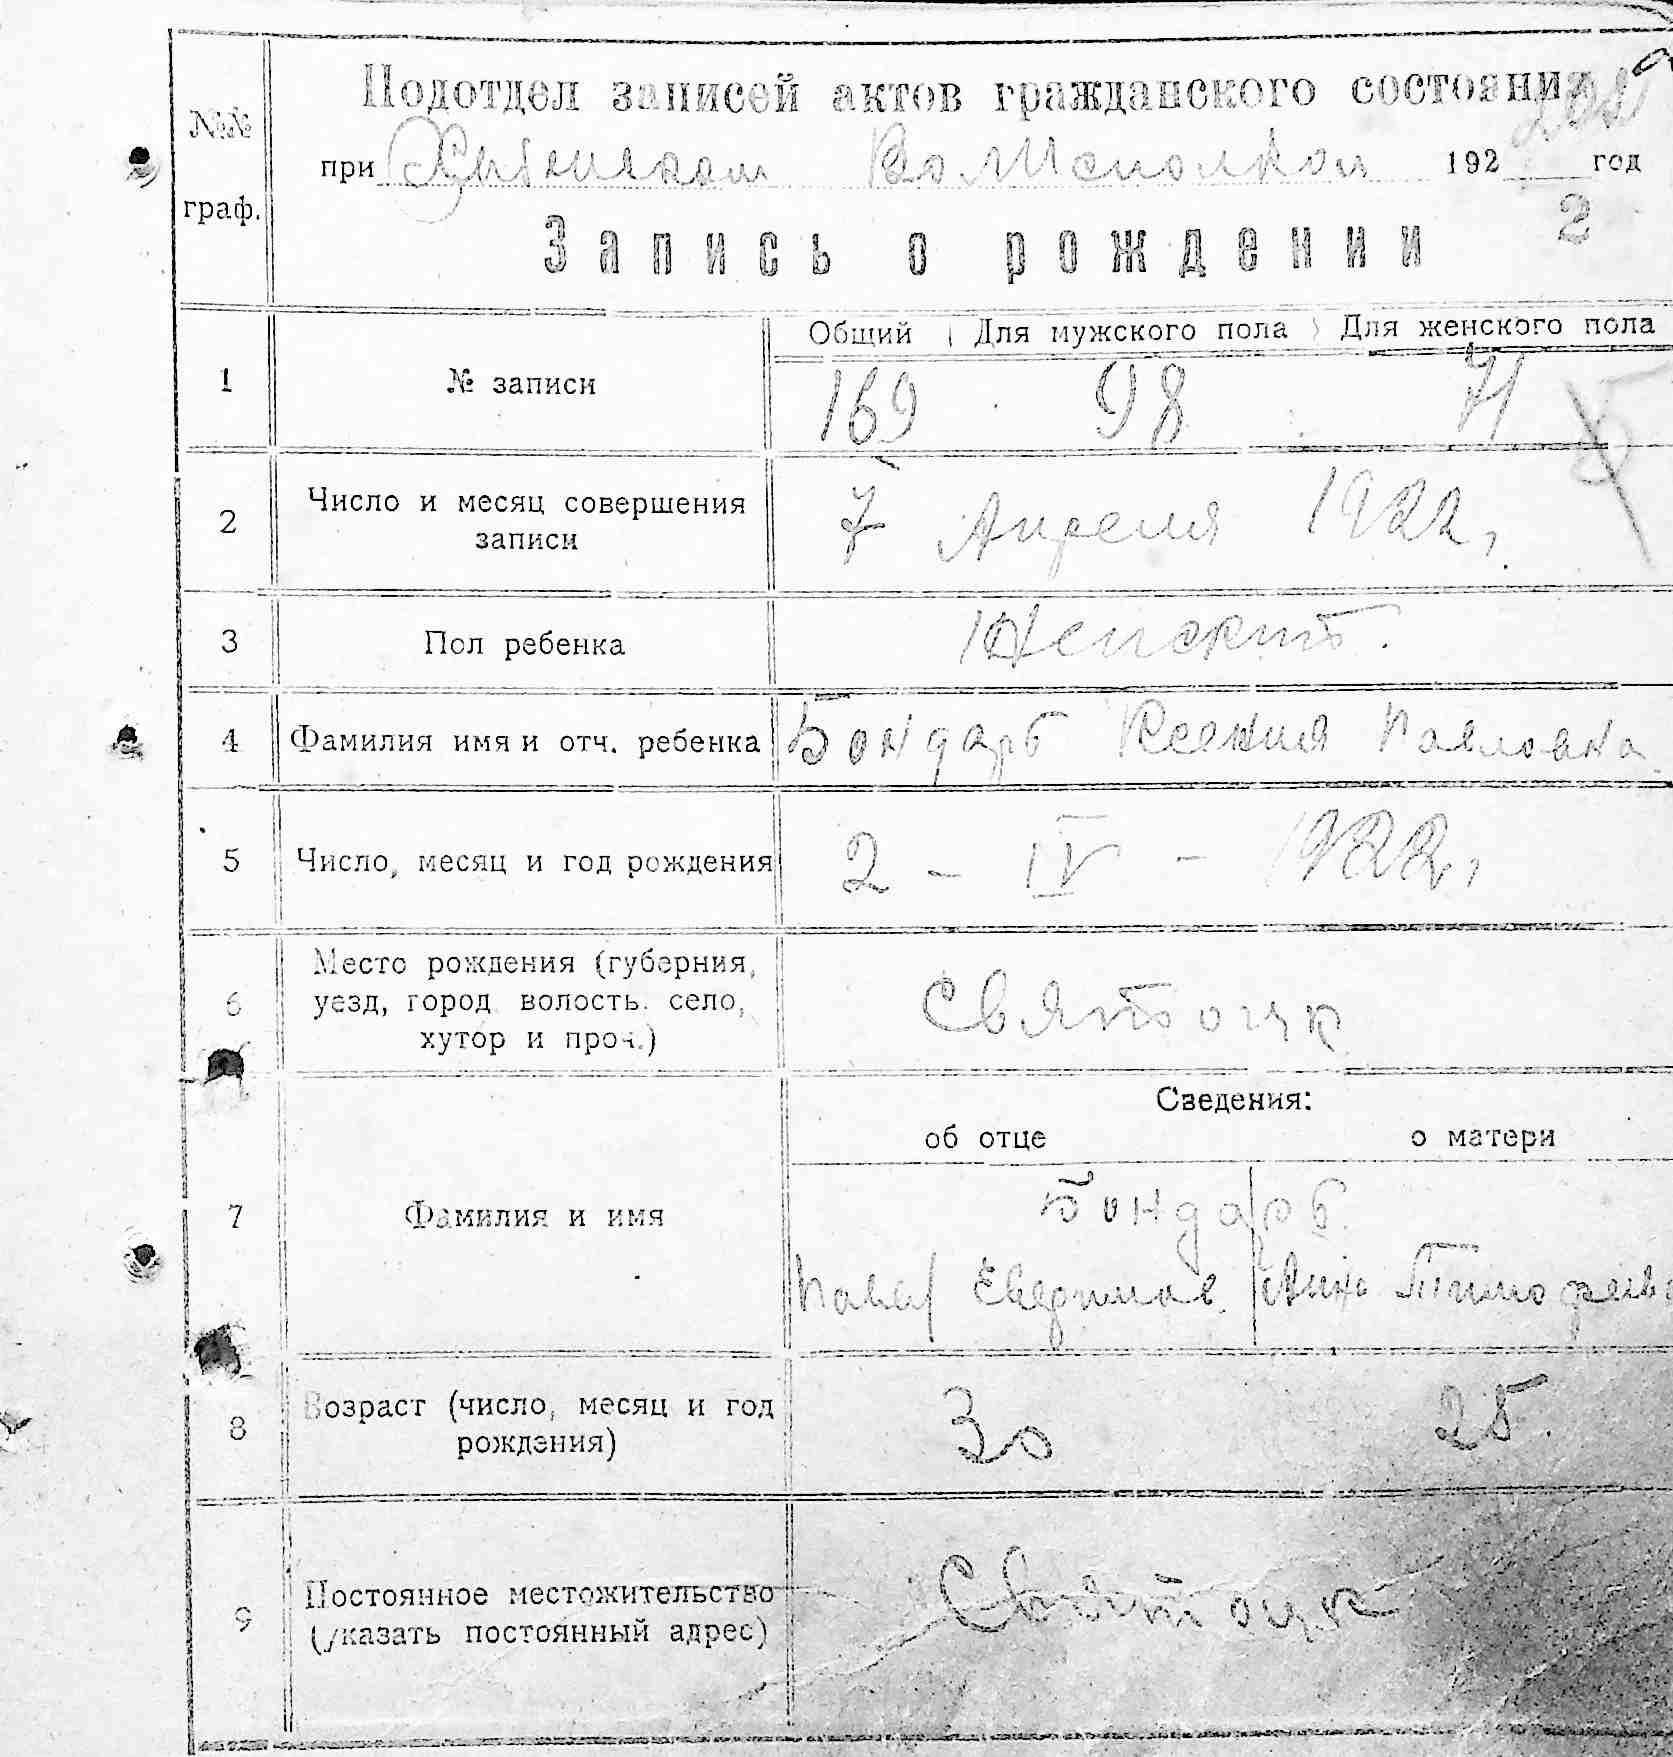 Подотдел записей актов гражданского состояния
№№
граф.
при Волисполком 192 год
2
Запись о рождении
Общий Для мужского пола Для женского пола
1 № записи 169 98 71
2 Число и месяц совершения
записи
7 Апреля 1922,
3 Пол ребенка Женский.
4 Фамилия имя и отч. ребенка Бондарь Ксения Павловна
5 Число, месяц и год рождения 2 - IV - 1922,
6 Место рождения (губерния,
уезд, город волость. село,
хутор и проч.)
Святоцк
Сведения:
об отце о матери
7 Фамилия и имя
Бондарь
Павел Анна Тимофеева
8 Возраст (число, месяц и год
рождения)
30 25.
9 Постоянное местожительство
(указать постоянный адрес)
Святоцк